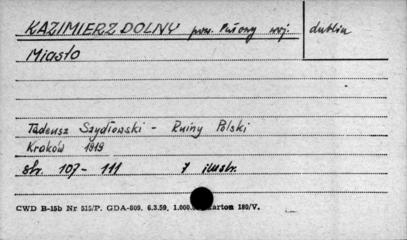 KAZIMIERZ DOLNY pow. Puławy woj. Lublin
Miasto
Tadeusz Szydłowski - Ruiny Polski
Kraków 1919
str. 107 - 111 7 ilustr.
CWD B-15b Nr 515/P. GDA-809. 6.3.59. 1.000. Karton 180/V.